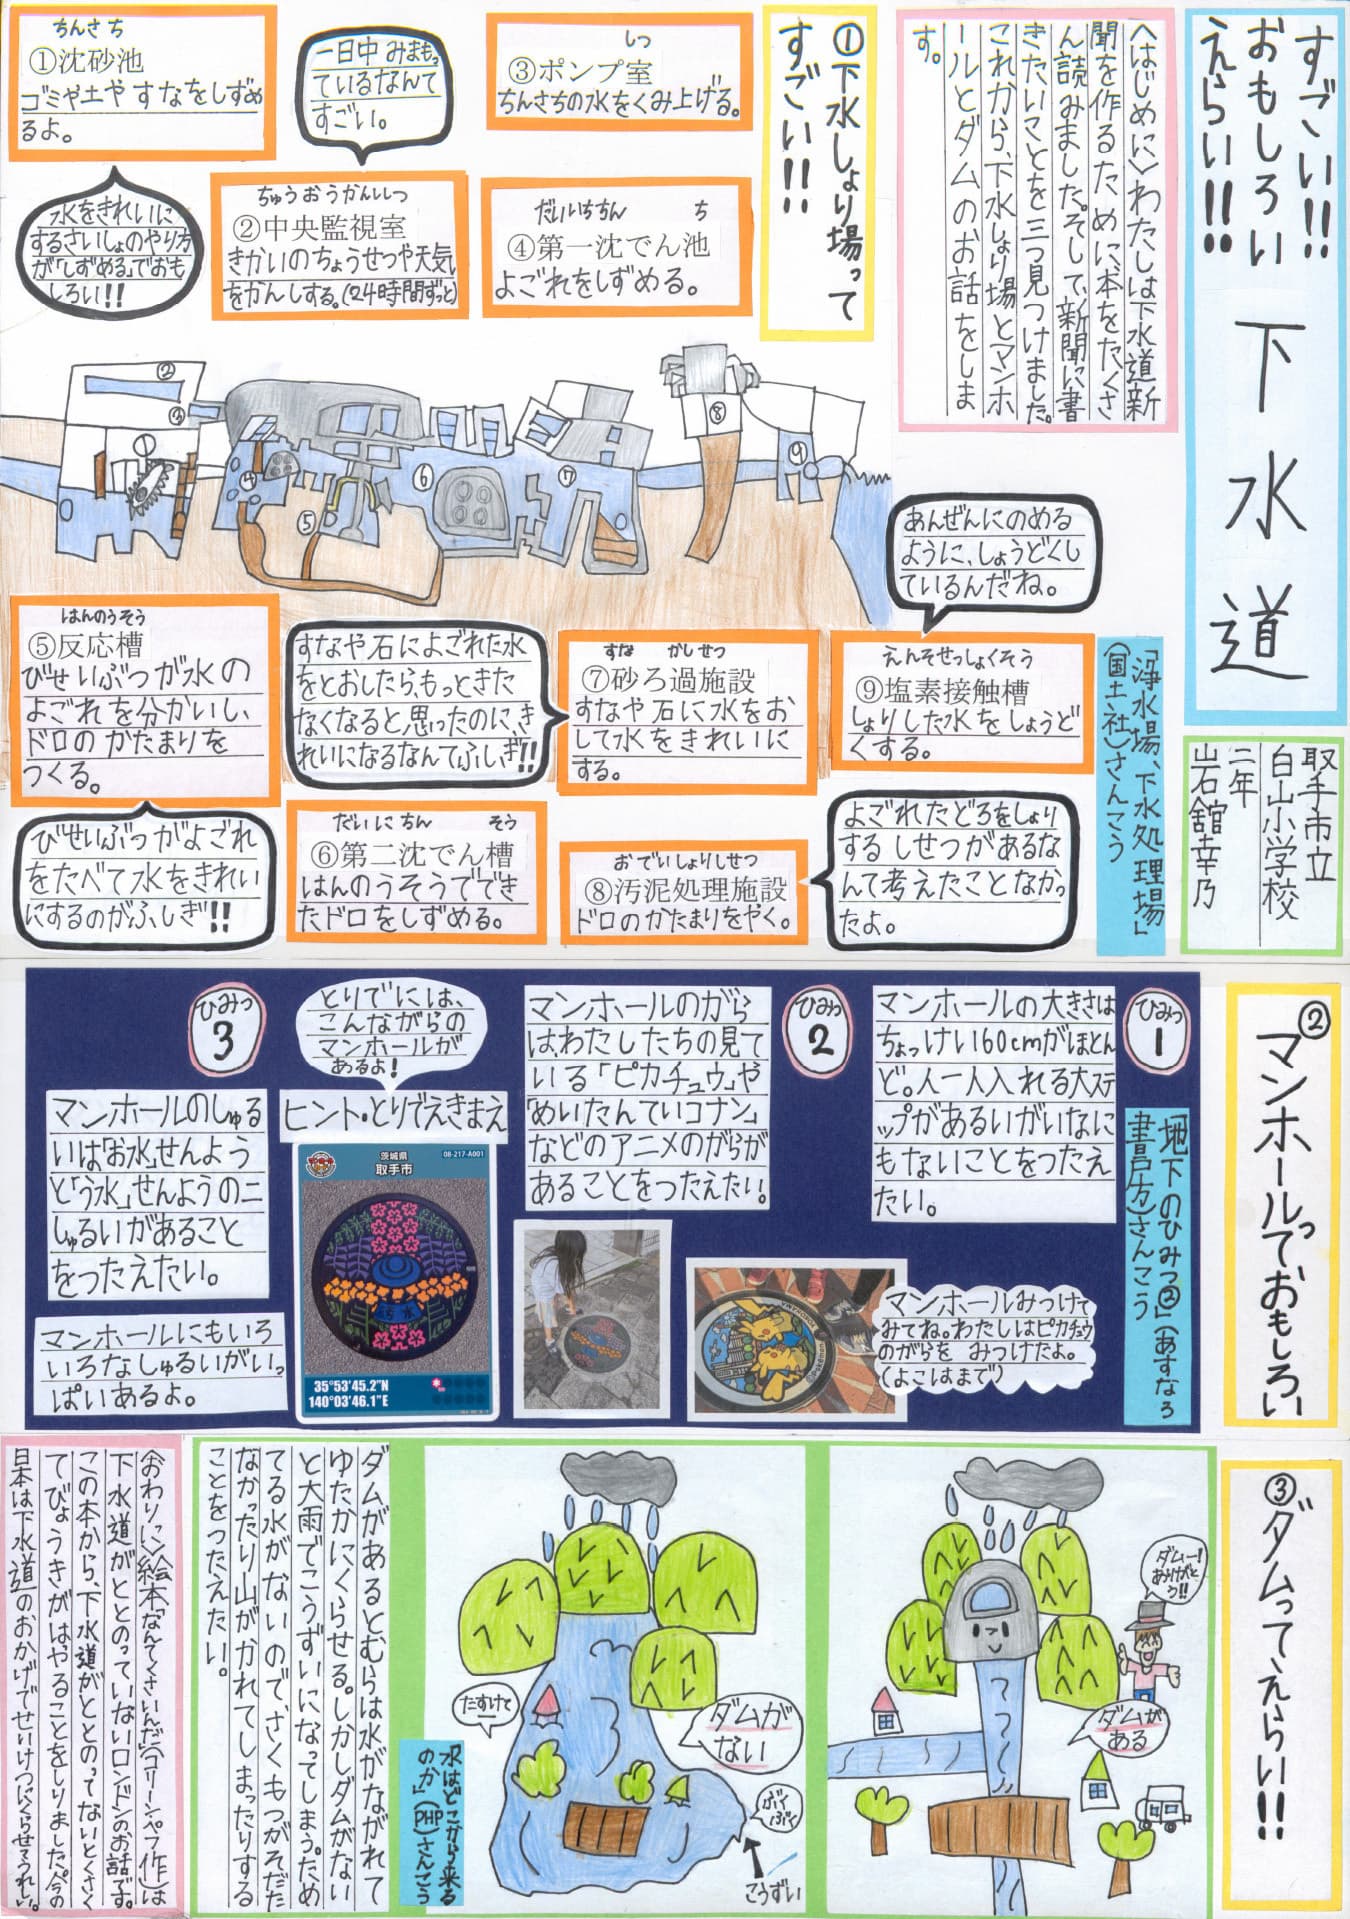 すごい!!
おもしろい
えらい!!
下水道
取手市立
白山小学校
二年
岩舘幸乃
〈はじめに〉わたしは下水道新
聞を作るために本をたくさ
ん読みました。そして、新聞に書
きたいことを三つ見つけました。
これから、下水しょり場とマンホ
ールとダムのお話をしま
す。
①下水しょり場って
すごい!!
ちんさち
①沈砂池
ゴミや土やすなをしずめ
るよ。
水をきれいに
するさいしょのやり方
が「しずめる」でおも
しろい!!
一日中みまもっ
ているなんて
すごい。
ちゅうおうかんしつ
②中央監視室
きかいのちょうせつや天気
をかんしする。(24時間ずっと)
しつ
③ポンプ室
ちんさちの水をくみ上げる。
だいいちちん ち
④第一沈でん池
よごれをしずめる。
②
③
①
④
⑤
⑥
⑦
⑧
⑨
はんのうそう
⑤反応槽
びせいぶつが水の
よごれを分かいし、
ドロのかたまりを
つくる。
びせいぶつがよごれ
をたべて水をきれい
にするのがふしぎ!!
だいにちん そう
⑥第二沈でん槽
はんのうそうででき
たドロをしずめる。
すなや石によごれた水
をとおしたら、もっときた
なくなると思ったのに、き
れいになるなんてふしぎ!!
すな かしせつ
⑦砂ろ過施設
すなや石に水をお
して水をきれいに
する。
おでいしょりしせつ
⑧汚泥処理施設
ドロのかたまりをやく。
よごれたどろをしょり
するしせつがあるな
んて考えたことなかっ
たよ。
えんそせっしょくそう
⑨塩素接触槽
しょりした水をしょうど
くする。
あんぜんにのめる
ように、しょうどくし
ているんだね。
「浄水場、下水処理場」
(国土社)さんこう
②マンホールっておもしろい
ひみつ
1
マンホールの大きさは
ちょっけい60cmがほとん
ど。人一人入れる大ステ
ップがあるいがいなに
もないことをつたえ
たい。
「地下のひみつ②」(あすなろ
書房)さんこう
ひみつ
2
マンホールのがら
は、わたしたちの見て
いる「ピカチュウ」や
「めいたんていコナン」
などのアニメのがらが
あることをつたえたい。
マンホールみつけて
みてね。わたしはピカチュウ
のがらをみつけたよ。
(よこはまで)
とりでには、
こんながらの
マンホールが
あるよ!
ヒント・とりでえきまえ
茨城県
取手市
08-217-A001
35°53'45.2"N
140°03'46.1"E
ひみつ
3
マンホールのしゅる
いは「お水」せんよう
と「う水」せんようの二
しゅるいがあること
をつたえたい。
マンホールにもいろ
いろなしゅるいがいっ
ぱいあるよ。
③ダムってえらい!!
ダムー!
ありがと
う!!
ダムが
ある
ダムが
ない
たすけて
ぶく
ぶく
こうずい
「水はどこから来る
のか」(PHP)さんこう
ダムがあるとむらは水がながれて
ゆたかにくらせる。しかしダムがない
と大雨でこうずいになってしまう。ため
てる水がないので、さくもつがそだた
なかったり山がかれてしまったりする
ことをつたえたい。
〈おわりに〉絵本「なんてくさいんだ」(コリーン・ペフ作)は
下水道がととのっていないロンドンのお話です。
この本から、下水道がととのってないとくさく
てびょうきがはやることをしりました。今の
日本は下水道のおかげでせいけつにくらせてうれしい。